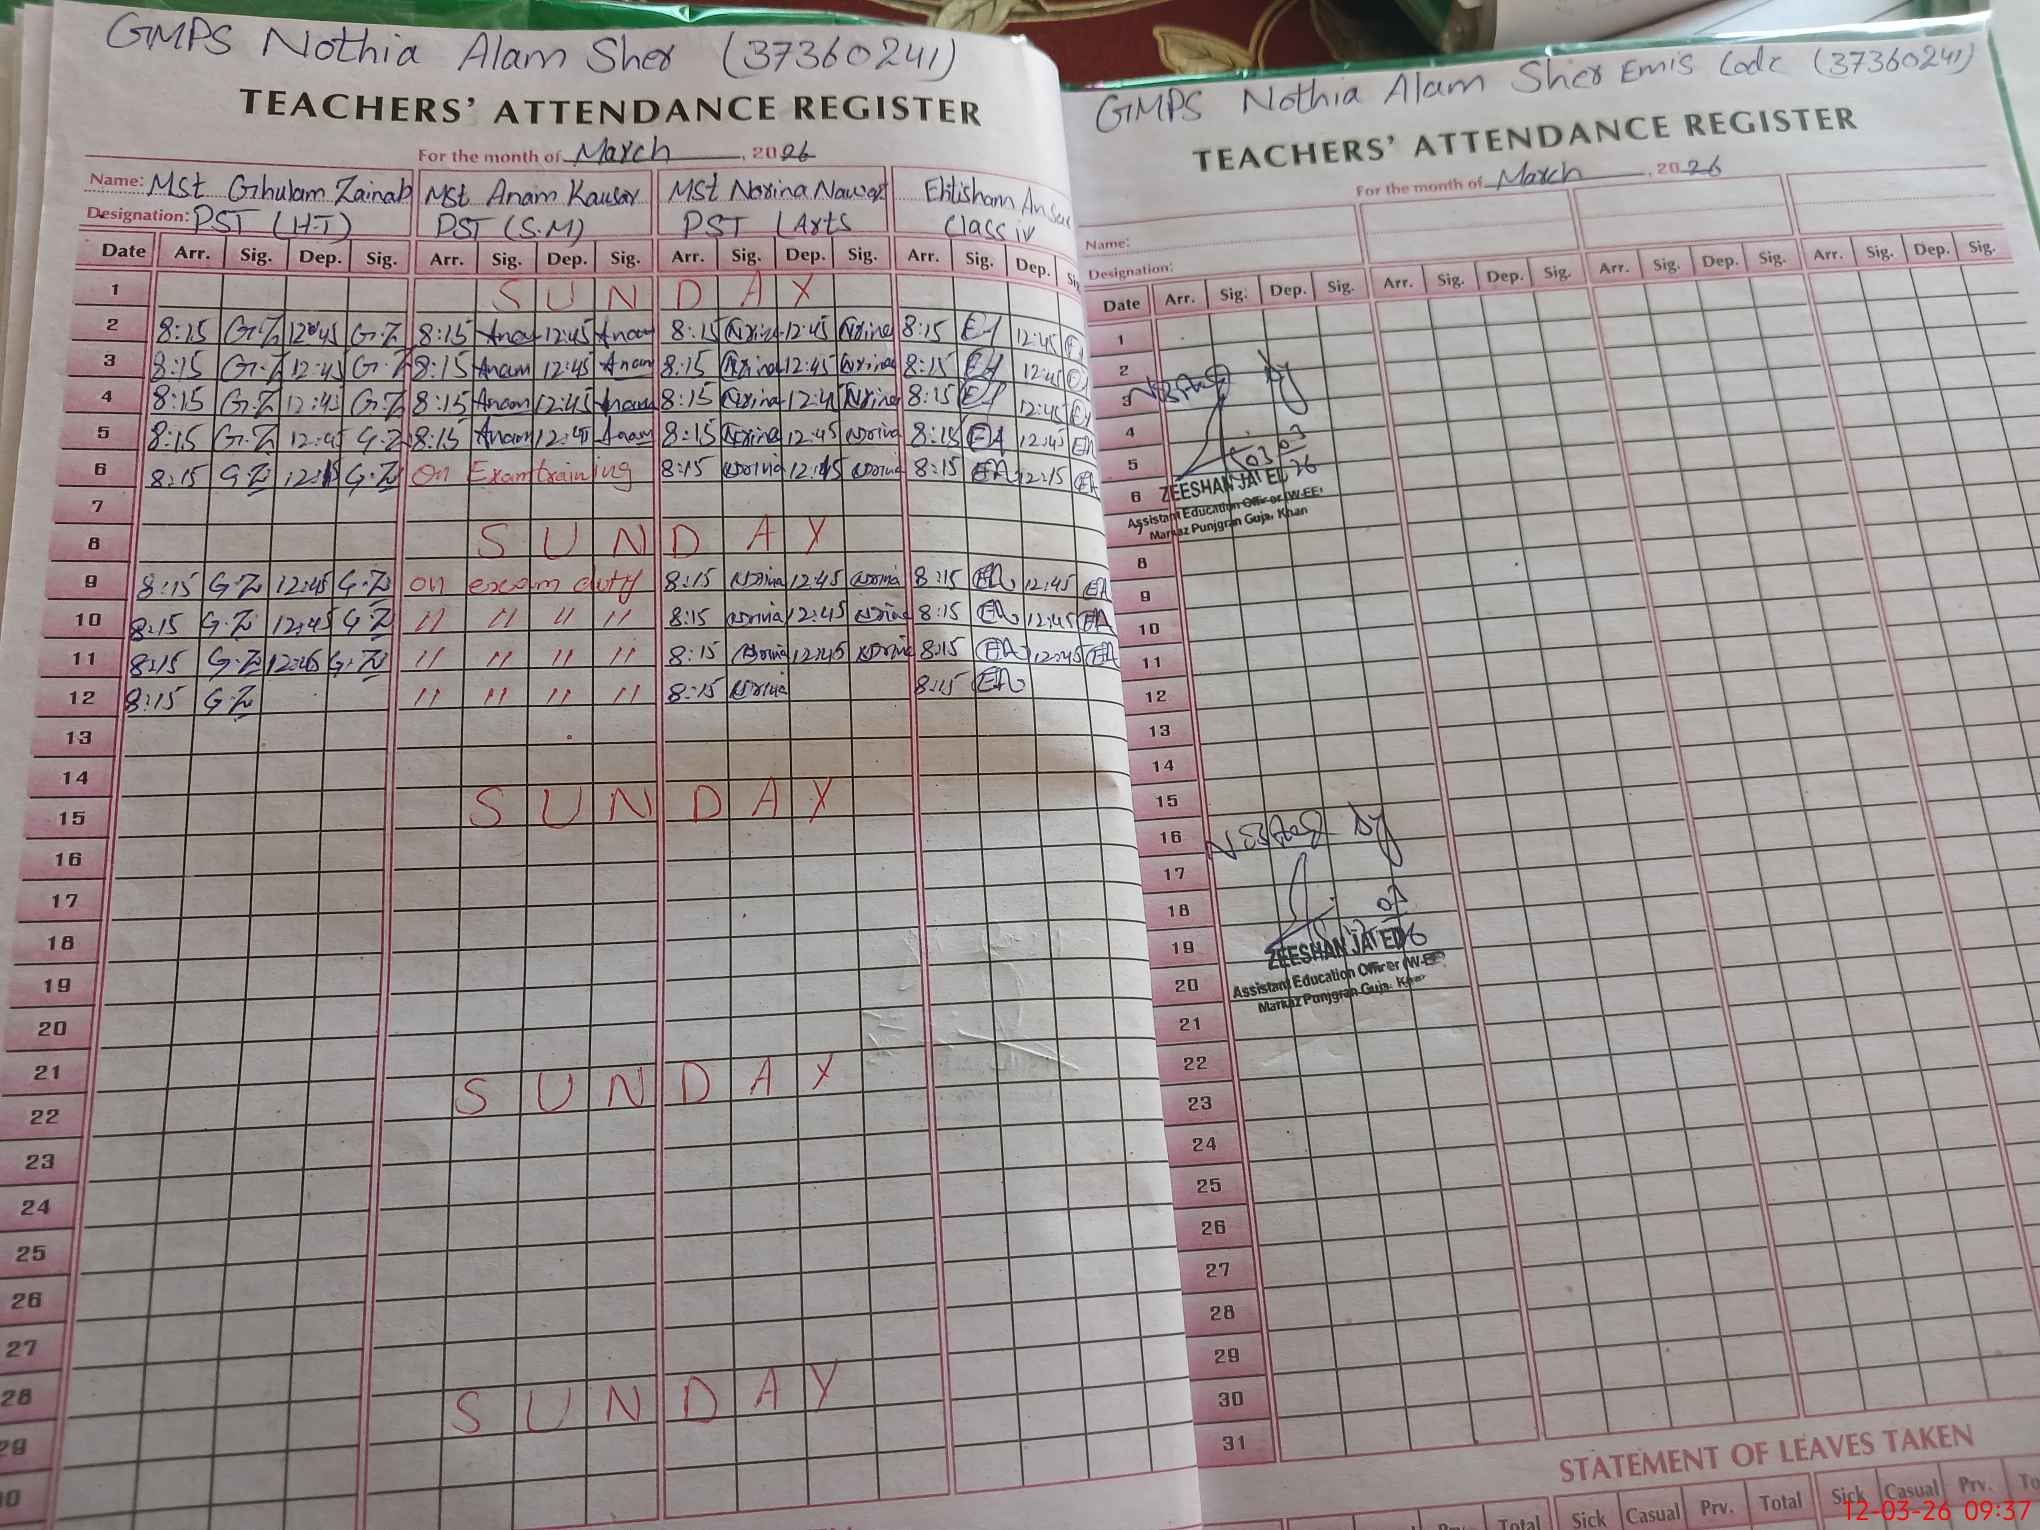 GMPS Nothia Alam Sher (37360241)
TEACHERS' ATTENDANCE REGISTER
For the month of March, 2026
Name: Mst Ghulam Zainab Mst Anam Kausar Mst Norina Nawaz Ehtisham
Designation: PST (H.T) PST (S.M) PST (Arts Class iv
Date Arr. Sig. Dep. Sig. Arr. Sig. Dep. Sig. Arr. Sig. Dep. Sig. Arr. Sig. Dep.
1 SUNDAY
2 8:15 G.Z 12:45 G.Z 8:15 Anam 12:45 Anam 8:15 Norina 12:45 Norina 8:15 EA 12:45 EA
3 8:15 G.Z 12:45 G.Z 8:15 Anam 12:45 Anam 8:15 Norina 12:45 Norina 8:15 EA 12:45 EA
4 8:15 G.Z 12:45 G.Z 8:15 Anam 12:45 Anam 8:15 Norina 12:45 Norina 8:15 EA 12:45 EA
5 8:15 G.Z 12:45 G.Z 8:15 Anam 12:45 Anam 8:15 Norina 12:45 Norina 8:15 EA 12:45 EA
6 8:15 G.Z G.Z On Exam training 8:15 Norina Norina 8:15 EA 12:15 EA
7
8 SUNDAY
9 8:15 G.Z 12:45 G.Z on exam duty 8:15 Norina 12:45 Norina 8:15 EA 12:45 EA
10 8:15 G.Z 12:45 G.Z // // // // 8:15 Norina 12:45 Norina 8:15 EA 12:45 EA
11 8:15 G.Z 12:45 G.Z // // // // 8:15 Norina 12:45 Norina 8:15 EA 12:45 EA
12 8:15 G.Z // // // // 8:15 Norina 8:15 EA
13
14
15 SUNDAY
16
17
18
19
20
21
22 SUNDAY
23
24
25
26
27
28
29 SUNDAY
30
GMPS Nothia Alam Sher Emis Code (37360241)
TEACHERS' ATTENDANCE REGISTER
For the month of March, 2026
Name:
Designation:
Date Arr. Sig. Dep. Sig. Arr. Sig. Dep. Sig. Arr. Sig. Dep. Sig. Arr. Sig. Dep. Sig.
1
2
3
4
5
6
ZEESHAN
Assistant Education Officer (W-EE)
Markaz Punjgran Gujar Khan
8
9
10
11
12
13
14
15
16
17
18
19
ZEESHAN
20
Assistant Education Officer
Markaz Punjgran
21
22
23
24
25
26
27
28
29
30
31
STATEMENT OF LEAVES TAKEN
Total Sick Casual Prv. Total Sick Casual Prv.
12-03-26 09:37